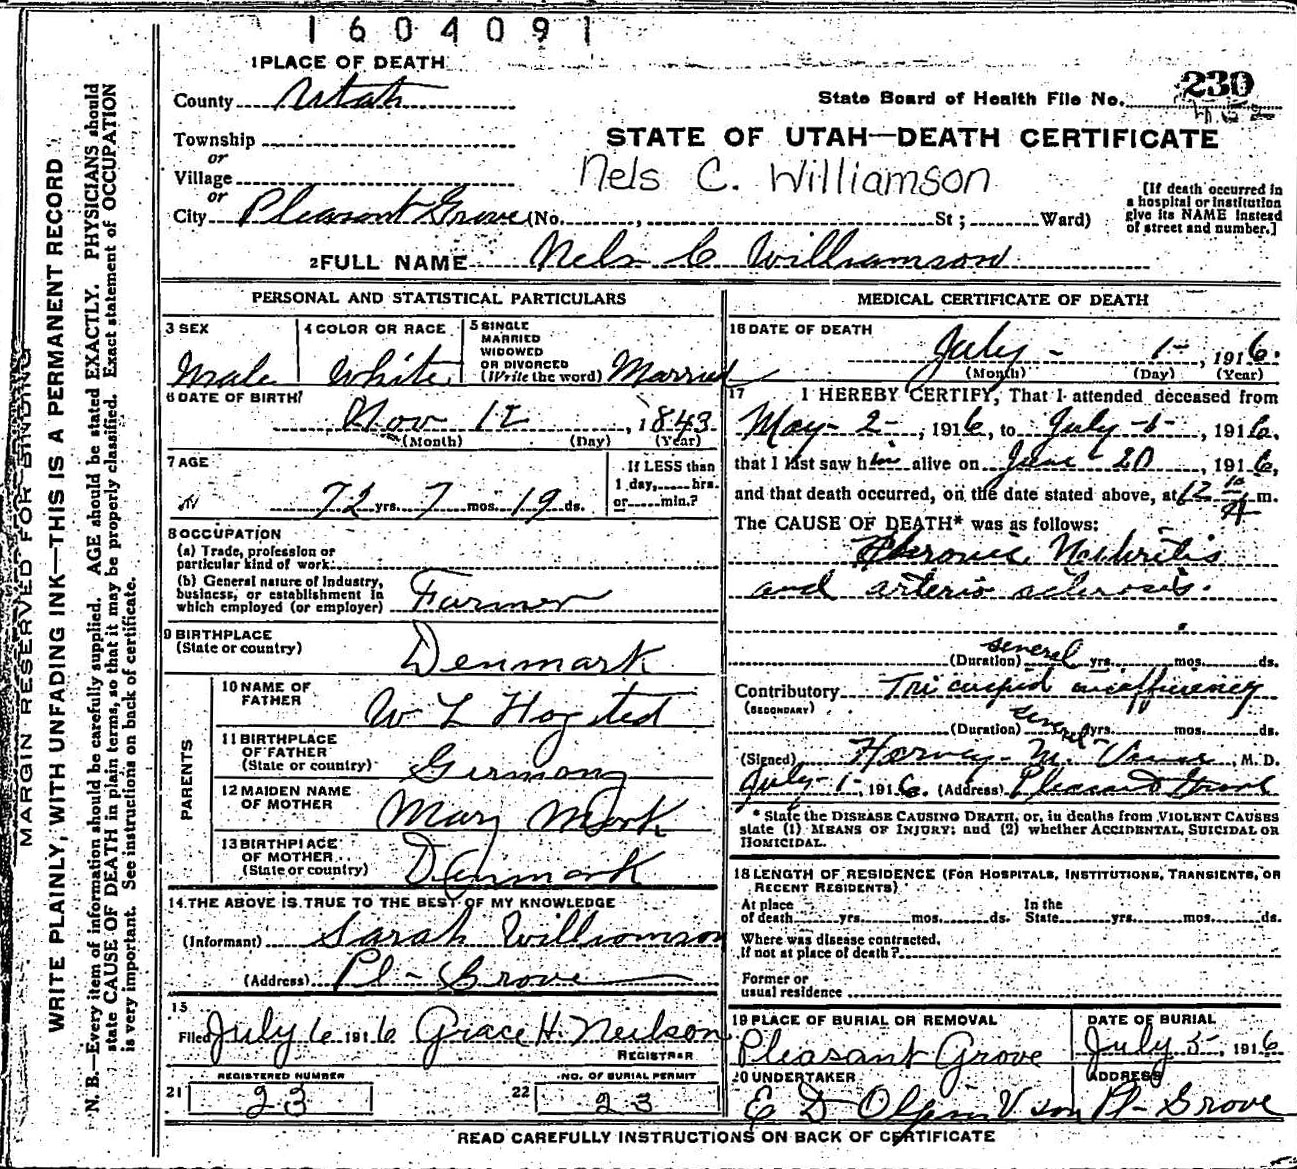 1604091
1 PLACE OF DEATH
County Utah
State Board of Health File No. 230
Township
or
Village
or
City Pleasant Grove (No. , St; Ward)
STATE OF UTAH—DEATH CERTIFICATE
Nels C. Williamson
[If death occurred in
a hospital or institution
give its NAME instead
of street and number.]
2 FULL NAME Nels C Williamson
PERSONAL AND STATISTICAL PARTICULARS
3 SEX
Male
4 COLOR OR RACE
White
5 SINGLE
MARRIED
WIDOWED
OR DIVORCED
(Write the word) Married
6 DATE OF BIRTH
Nov 12, 1843
(Month) (Day) (Year)
7 AGE
72 yrs. 7 mos. 19 ds.
If LESS than
1 day, hrs.
or min.?
8 OCCUPATION
(a) Trade, profession or
particular kind of work:
(b) General nature of Industry,
business, or establishment in
which employed (or employer) Farmer
9 BIRTHPLACE
(State or country) Denmark
PARENTS
10 NAME OF
FATHER W L Hogsted
11 BIRTHPLACE
OF FATHER
(State or country) Germany
12 MAIDEN NAME
OF MOTHER Mary Mork
13 BIRTHPLACE
OF MOTHER
(State or country) Denmark
14 THE ABOVE IS TRUE TO THE BEST OF MY KNOWLEDGE
(Informant) Sarah Williamson
(Address) Pl- Grove
15
Filed July 6 1916 Grace H. Neilson
REGISTRAR
REGISTERED NUMBER
21 23
NO. OF BURIAL PERMIT
22 23
MEDICAL CERTIFICATE OF DEATH
16 DATE OF DEATH
July - 1 -, 1916.
(Month) (Day) (Year)
17 I HEREBY CERTIFY, That I attended deceased from
May- 2 -, 1916, to July -1-, 1916,
that I last saw him alive on June 20, 1916,
and that death occurred, on the date stated above, at 12 m.
The CAUSE OF DEATH* was as follows:
Chronic Nephritis
and arterio sclerosis.
(Duration) several yrs. mos. ds.
Contributory Tricuspid insufficiency
(SECONDARY)
(Duration) several yrs. mos. ds.
(Signed) Harvey M. , M. D.
July-1-, 1916. (Address) Pleasant Grove
* State the DISEASE CAUSING DEATH, or, in deaths from VIOLENT CAUSES
state (1) MEANS OF INJURY; and (2) whether ACCIDENTAL, SUICIDAL OR
HOMICIDAL.
18 LENGTH OF RESIDENCE (FOR HOSPITALS, INSTITUTIONS, TRANSIENTS, OR
RECENT RESIDENTS)
At place
of death yrs. mos. ds.
In the
State yrs. mos. ds.
Where was disease contracted,
If not at place of death?
Former or
usual residence
19 PLACE OF BURIAL OR REMOVAL
Pleasant Grove
DATE OF BURIAL
July 5, 1916
20 UNDERTAKER
E D Olpin & son
ADDRESS
Pl- Grove
READ CAREFULLY INSTRUCTIONS ON BACK OF CERTIFICATE
MARGIN RESERVED FOR BINDING
WRITE PLAINLY, WITH UNFADING INK—THIS IS A PERMANENT RECORD
N. B.—Every item of information should be carefully supplied. AGE should be stated EXACTLY. PHYSICIANS should
state CAUSE OF DEATH in plain terms, so that it may be properly classified. Exact statement of OCCUPATION
is very important. See instructions on back of certificate.